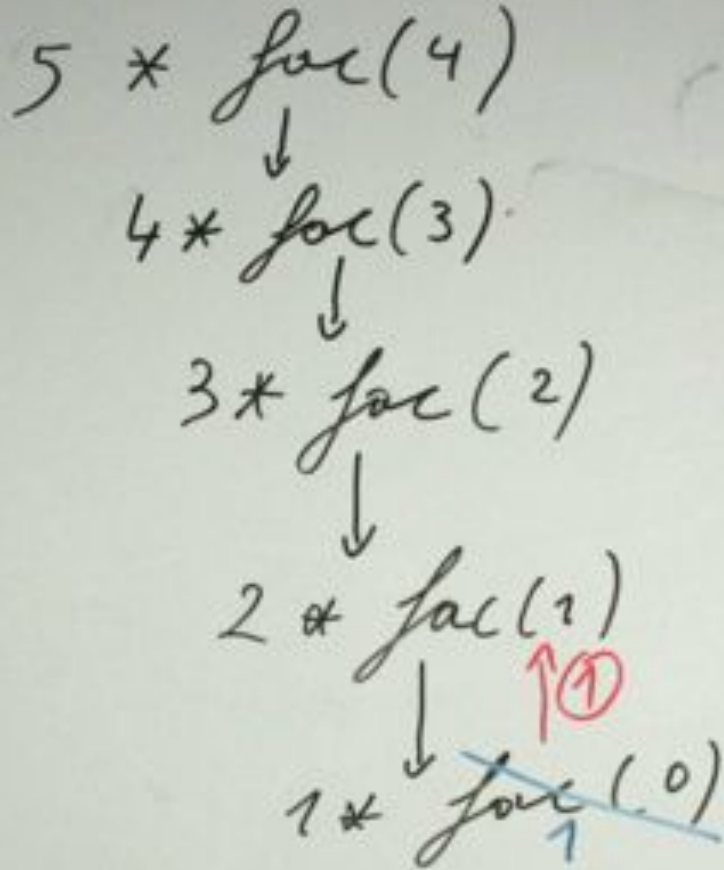 5 * fac(4)
4 * fac(3)
3 * fac(2)
2 * fac(1)
1
1 * fac(0)
1